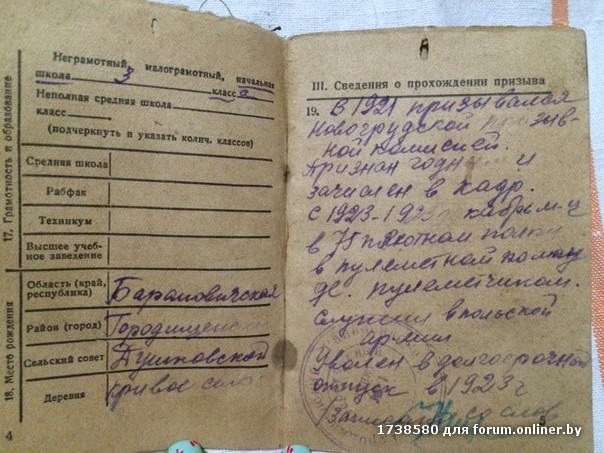 17. Грамотность и образование
Неграмотный, малограмотный, начальная
школа 3 класса
Неполная средняя школа
класс
(подчеркнуть и указать колич. классов)
Средняя школа
Рабфак
Техникум
Высшее учеб-
ное заведение
18. Место рождения
Область (край,
республика) Барановичская
Район (город)
Сельский совет
Деревня кривое село
4
III. Сведения о прохождении призыва
19. В 1921 призывался
Новогрудской призыв-
ной комисией.
Признан годным и
зачислен в кадр.
С 1923-
в 75 пехотном полку
в пулеметной
пулеметчиком.
Служил в польской
армии
Уволен в долгосрочный
отпуск в 1923 г
со слов
1738580 для forum.onliner.by